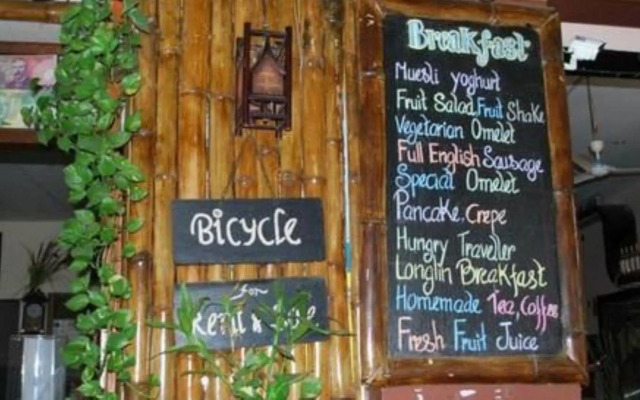 Breakfast
Muesli yoghurt
Fruit Salad, Fruit Shake
Vegetarian Omelet
Full English Sausage
Special Omelet
Pancake, Crepe
Hungry Traveller
Longlin Breakfast
Homemade Tea, Coffee
Fresh Fruit Juice
Bicycle
for
Rent &